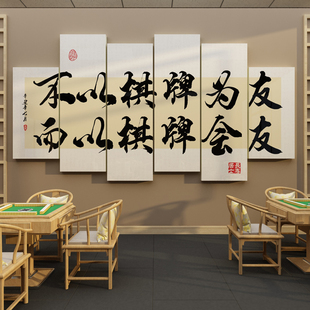 不以棋牌为友
而以棋牌会友